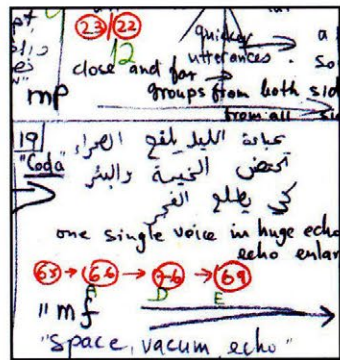 23/22
12
quicker
utterances.
close and far
groups from both sid
mp
from all
19
"Coda"
بعباءة الليل يلفع الصحراء
الخيمة والبئر
كي يطلع الفجر
one single voice in huge echo
echo enlar
65 → 66 → 46 → 69
A D E
"mf
"space, vacum echo"